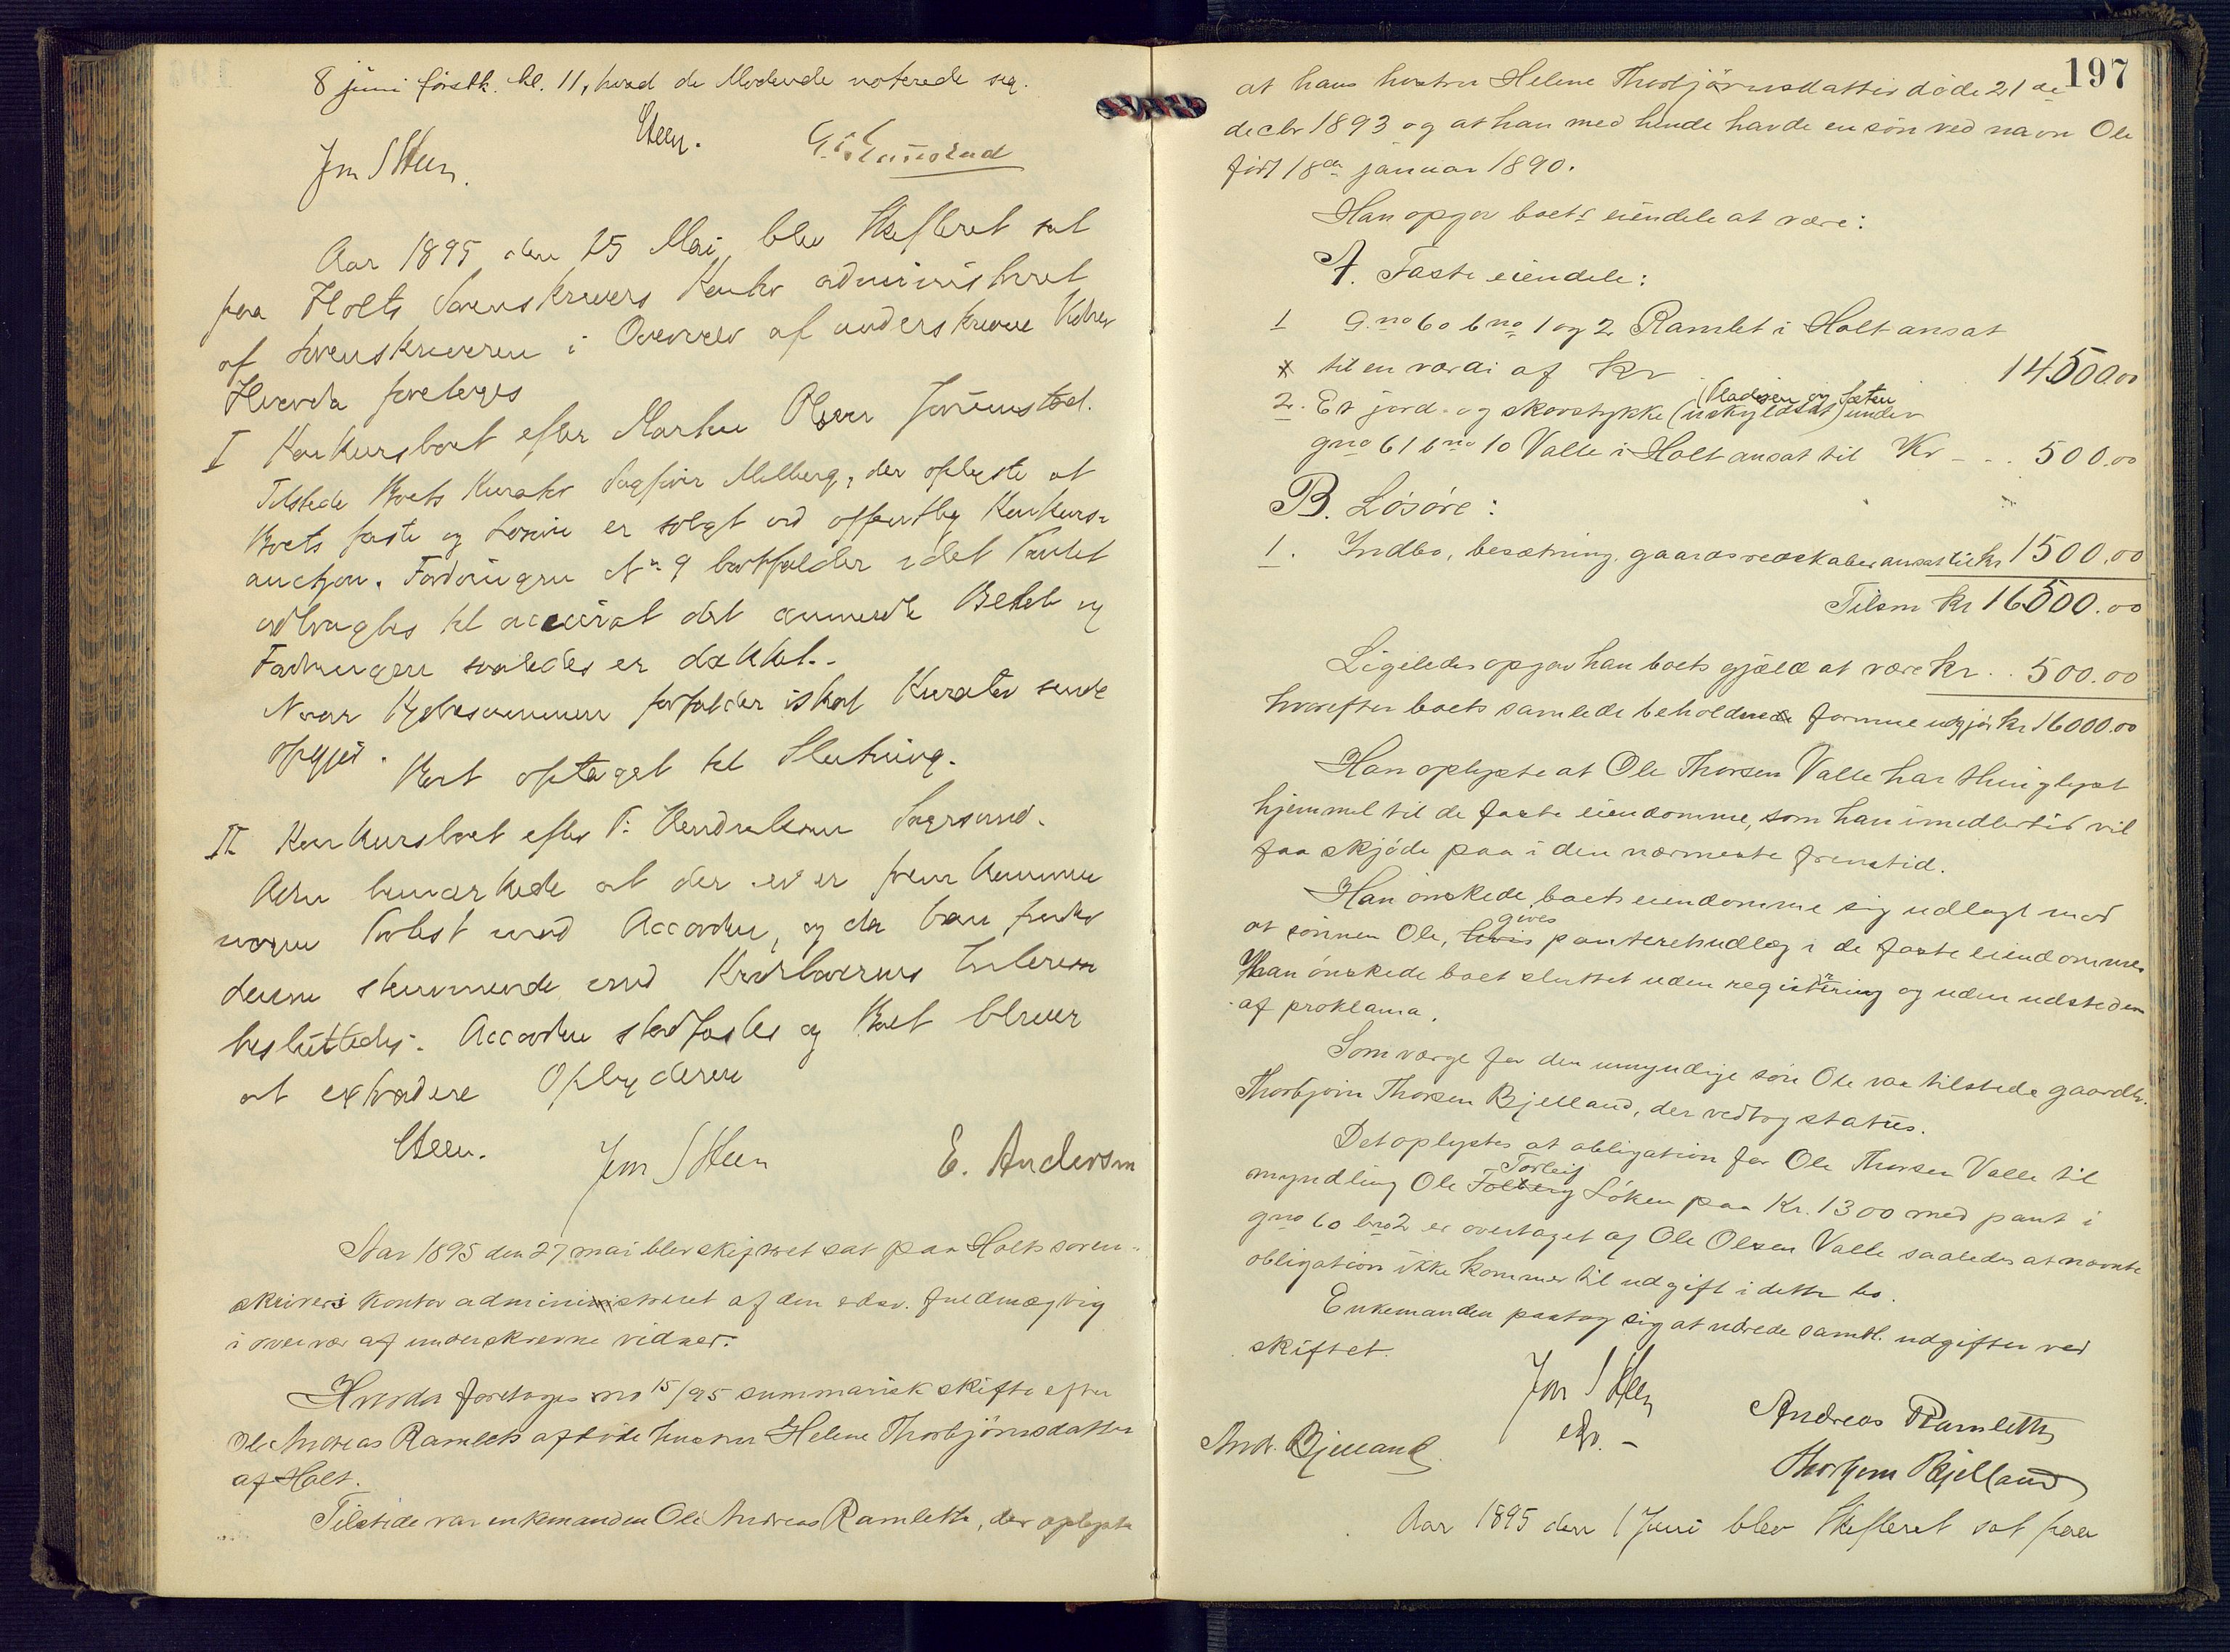 8 juni førstk. kl. 11, hvad de Mødende noterede seg.
Steen.
Jon S Steen.
Aar 1895 den 25 Mai blev Skifteret sat
paa Holts Sorenskrivers Kontor administreret
af Sorenskriveren i Overvær af underskrevne Vidner
Hvorda foretoges
I Konkursboet efter Markus Olsen
Tilstede Boets Kurator Sagfører Melberg, der oplyste at
Boets faste og Løsøre er solgt ved offentlig Konkurs-
auction. Fordringen No 9 bortfalder idet Pantet
udbragtes til det anmeldte Beløb og
Fordringen saaledes er dækket.
Naar Kjøbesummen forfalder skal Kurator sende
opgjør.
Boet optaget til Slutning.
II Konkursboet efter T. Hendriksen Sagesund.
Adm bemærkede at der ei er fremkommen
nogen Protest mod Accorden, og da han finder
denne stemmende med Kreditorernes Interesse
besluttedes: Accorden stadfæstes og Boet bliver
at extradere Opbyderen
Steen.
Jon S Steen
E. Andersen
Aar 1895 den 27 mai blev skifteret sat paa Holts soren-
skriveris kontor administreret af den edsv. fuldmægtig
i overvær af underskrevne vidner.
Hvorda foretoges no 15/95 summarisk skifte efter
Ole Andreas Ramlets afdøde hustru Helene Thorbjörnsdatter
af Holt.
Tilstede var enkemanden Ole Andreas Ramlette, der oplyste
197
at hans hustru Helene Thorbjörnsdatter döde 21de
decbr 1893 og at han med hende havde en sön ved navn Ole
född 18de januar 1890.
Han opgav boets eiendele at være:
A. Faste eiendele:
1 G.no 60 bno 1 og 2 Ramlet i Holt ansat
x til en værdi af Kr 14500.00
(Kladsen og Sæten
2. Et jord- og skovstykke (uskyldsat) under
gno 61 bno 10 Valle i Holt ansat til Kr - . . 500.00
B. Lösöre:
1. Indbo, besætning, gaardsredskaber ansat til kr 1500.00
Tilsm kr 16500.00
Ligeledes opgav han boets gjæld at være kr . . 500.00
hvorefter boets samlede beholdne formue udgjör kr 16000.00
Han oplyste at Ole Thorsen Valle har thinglyst
hjemmel til de faste eiendomme, som han imidlertid vil
faa skjöde paa i den nærmeste fremtid.
Han önskede boets eiendomme sig udlagt mod
gives
at sönnen Ole, hvis panteretsudlæg i de faste eiendomme.
Han önskede boet sluttet uden registrering og uden udstedn
af proklama.
Som værge for den umyndige sön Ole var tilstede gaardbr.
Thorbjörn Thorsen Bjelland, der vedtog status.
Det oplystes at obligation fra Ole Thorsen Valle til
Torleif
myndling Ole Löken paa Kr. 1300 med pant i
gno 60 bno 2 er overtaget af Ole Olsen Valle saaledes at nævnte
obligation ikke kommer til udgift i dette bo.
Enkemanden paatog sig at udrede samtl. udgifter ved
skiftet.
Jon S Steen
edsv. -
Andreas Ramlette
And. Bjelland.
Thorbjørn Bjelland
Aar 1895 den 1 Juni blev Skifteret sat paa